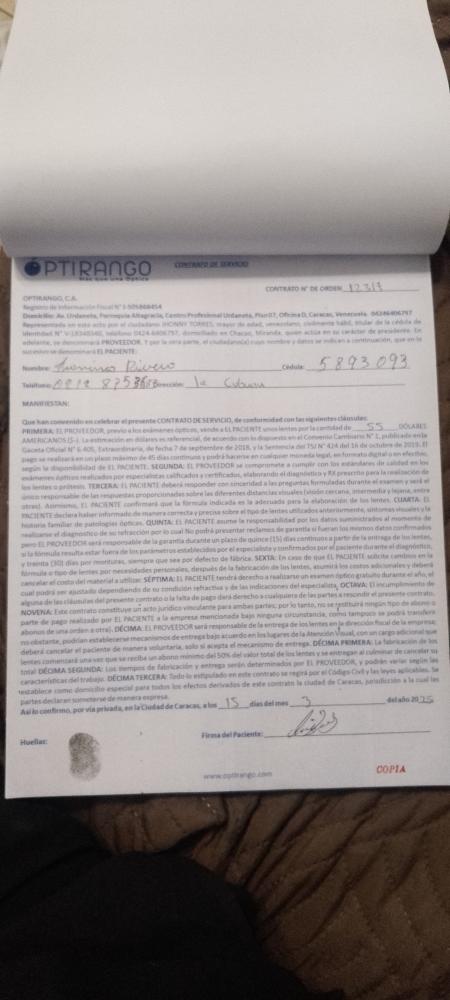 OPTIRANGO
Más que una Óptica
CONTRATO DE SERVICIO
CONTRATO N° DE ORDEN
OPTIRANGO, C.A.
Registro de Información Fiscal N° J-505868454
Domicilio: Av. Urdaneta, Parroquia Altagracia, Centro Profesional Urdaneta, Piso 07, Oficina D, Caracas, Venezuela. 04246406797
Representada en este acto por el ciudadano JHONNY TORRES, mayor de edad, venezolano, civilmente hábil, titular de la cédula de
identidad N° V-18340540, teléfono 0424-6406797, domiciliado en Chacao, Miranda, quien actúa en su carácter de presidente. En
adelante, se denominará PROVEEDOR. Y por la otra parte, el ciudadano(a) cuyo nombre y datos se indican a continuación, que en lo
sucesivo se denominará EL PACIENTE:
Nombre: Rivero Cédula: 5893093
Teléfono: Dirección: la
MANIFIESTAN:
Que han convenido en celebrar el presente CONTRATO DE SERVICIO, de conformidad con las siguientes cláusulas:
PRIMERA: EL PROVEEDOR, previo a los exámenes ópticos, vende a EL PACIENTE unos lentes por la cantidad de 55 DÓLARES
AMERICANOS ($-). La estimación en dólares es referencial, de acuerdo con lo dispuesto en el Convenio Cambiario N° 1, publicado en la
Gaceta Oficial N° 6.405, Extraordinaria, de fecha 7 de septiembre de 2018, y la Sentencia del TSJ N° 424 del 16 de octubre de 2019. El
pago se realizará en un plazo máximo de 45 días continuos y podrá hacerse en cualquier moneda legal, en formato digital o en efectivo,
según la disponibilidad de EL PACIENTE. SEGUNDA: EL PROVEEDOR se compromete a cumplir con los estándares de calidad en los
exámenes ópticos realizados por especialistas calificados y certificados, elaborando el diagnóstico y RX prescrito para la realización de
los lentes o prótesis. TERCERA: EL PACIENTE deberá responder con sinceridad a las preguntas formuladas durante el examen y será el
único responsable de las respuestas proporcionadas sobre las diferentes distancias visuales (visión cercana, intermedia y lejana, entre
otras). Asimismo, EL PACIENTE confirmará que la fórmula indicada es la adecuada para la elaboración de los lentes. CUARTA: EL
PACIENTE declara haber informado de manera correcta y precisa sobre el tipo de lentes utilizados anteriormente, síntomas visuales y la
historia familiar de patologías ópticas. QUINTA: EL PACIENTE asume la responsabilidad por los datos suministrados al momento de
realizarse el diagnóstico de su refracción por lo cual No podrá presentar reclamos de garantía si fueran los mismos datos confirmados
pero EL PROVEEDOR será responsable de la garantía durante un plazo de quince (15) días continuos a partir de la entrega de los lentes,
si la fórmula resulta estar fuera de los parámetros establecidos por el especialista y confirmados por el paciente durante el diagnóstico,
y treinta (30) días por monturas, siempre que sea por defecto de fábrica. SEXTA: En caso de que EL PACIENTE solicite cambios en la
fórmula o tipo de lentes por necesidades personales, después de la fabricación de los lentes, asumirá los costos adicionales y deberá
cancelar el costo del material a utilizar. SÉPTIMA: EL PACIENTE tendrá derecho a realizarse un examen óptico gratuito durante el año, el
cual podrá ser ajustado dependiendo de su condición refractiva y de las indicaciones del especialista. OCTAVA: El incumplimiento de
alguna de las cláusulas del presente contrato o la falta de pago dará derecho a cualquiera de las partes a rescindir el presente contrato.
NOVENA: Este contrato constituye un acto jurídico vinculante para ambas partes; por lo tanto, no se restituirá ningún tipo de abono o
parte de pago realizado por EL PACIENTE a la empresa mencionada bajo ninguna circunstancia, como tampoco se podrá transferir
abonos de una orden a otra). DÉCIMA: EL PROVEEDOR será responsable de la entrega de los lentes en la dirección fiscal de la empresa;
no obstante, podrían establecerse mecanismos de entrega bajo acuerdo en los lugares de la Atención Visual, con un cargo adicional que
deberá cancelar el paciente de manera voluntaria, solo si acepta el mecanismo de entrega. DÉCIMA PRIMERA: La fabricación de los
lentes comenzará una vez que se reciba un abono mínimo del 50% del valor total de los lentes y se entregan al culminar de cancelar su
total. DÉCIMA SEGUNDA: Los tiempos de fabricación y entrega serán determinados por EL PROVEEDOR, y podrán variar según las
características del trabajo. DÉCIMA TERCERA: Todo lo estipulado en este contrato se regirá por el Código Civil y las leyes aplicables. Se
establece como domicilio especial para todos los efectos derivados de este contrato la ciudad de Caracas, jurisdicción a la cual las
partes declaran someterse de manera expresa.
Así lo confirmo, por vía privada, en la Ciudad de Caracas, a los 15 días del mes 3 del año 2025
Huellas: Firma del Paciente:
www.optirango.com
COPIA